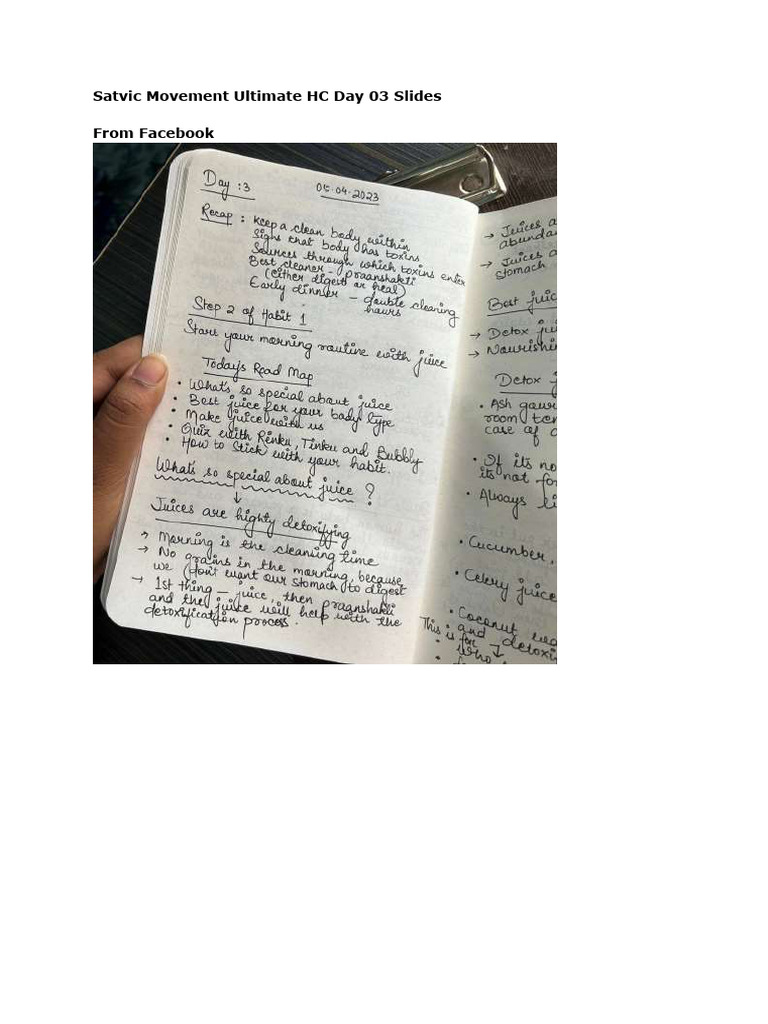 Satvic Movement Ultimate HC Day 03 Slides
From Facebook
Day :3
05.04.2023
Recap : Keep a clean body within
Signs that body has toxins
Sources through which toxins enter
Best cleaner - praanshakti
(either digest or heal)
Early dinner – double cleaning
hours
Step 2 of Habit 1
Start your morning routine with juice
Todays Road Map
• What's so special about juice
• Best juice for your body type
• Make juice with us
• Quiz with Rinku, Tinku and Bubbly
• How to stick with your habit.
What's so special about juice ?
↓
Juices are highly detoxifying
→ Morning is the cleansing time
→ No grains in the morning, because
we (don't want our stomach) to digest
→ 1st thing – juice, then praanshakti
and the juice will help with the
detoxification process.
→ Juices a
abundan
→ Juices a
stomach
Best juic
→ Detox jui
→ Nourishin
Detox j
• Ash gour
room tem
case of
• If its no
its not fo
• Always li
• Cucumber,
• Celery juice
• Coconut wa
and detoxi
This is for ↓
• Who